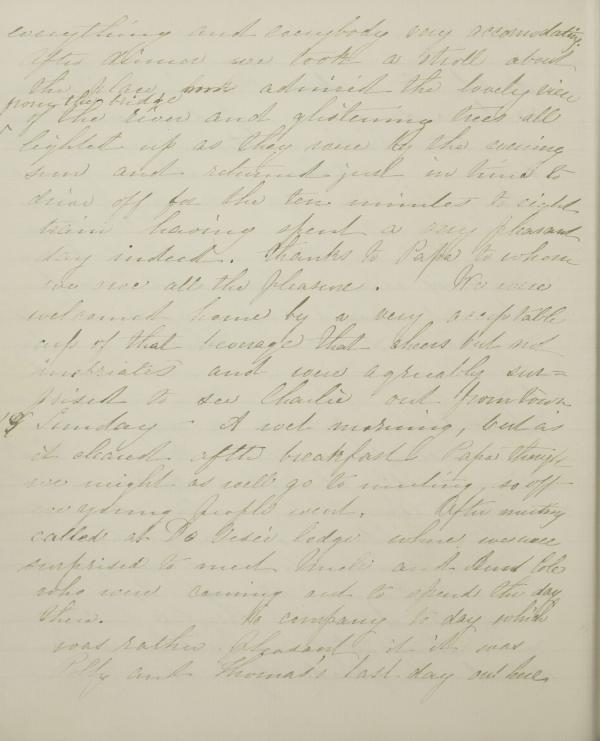 everything and everybody very accomodating.
After dinner we took a stroll about
the place admired the lovely view
from the bridge
of the river and glistening trees all
lighted up as they were by the evening
sun and returned just in time to
drive off for the ten minutes to eight
train having spent a very pleasant
day indeed. Thanks to Papa to whom
we owe all the pleasure. We were
welcomed home by a very acceptable
cup of that beverage that cheers but not
inebriates and were agreeably sur=
prised to see Charlie out from town
19 Sunday A wet morning, but as
it cleared after breakfast Papa though
we might as well go to meeting, so off
we young people went. After meeting
called at lodge where we were
surprised to meet Uncle and Aunt Cole
who were coming out to spend the day
there. No company to day which
was rather pleasant, it was
Polly and Thomas's last day out here